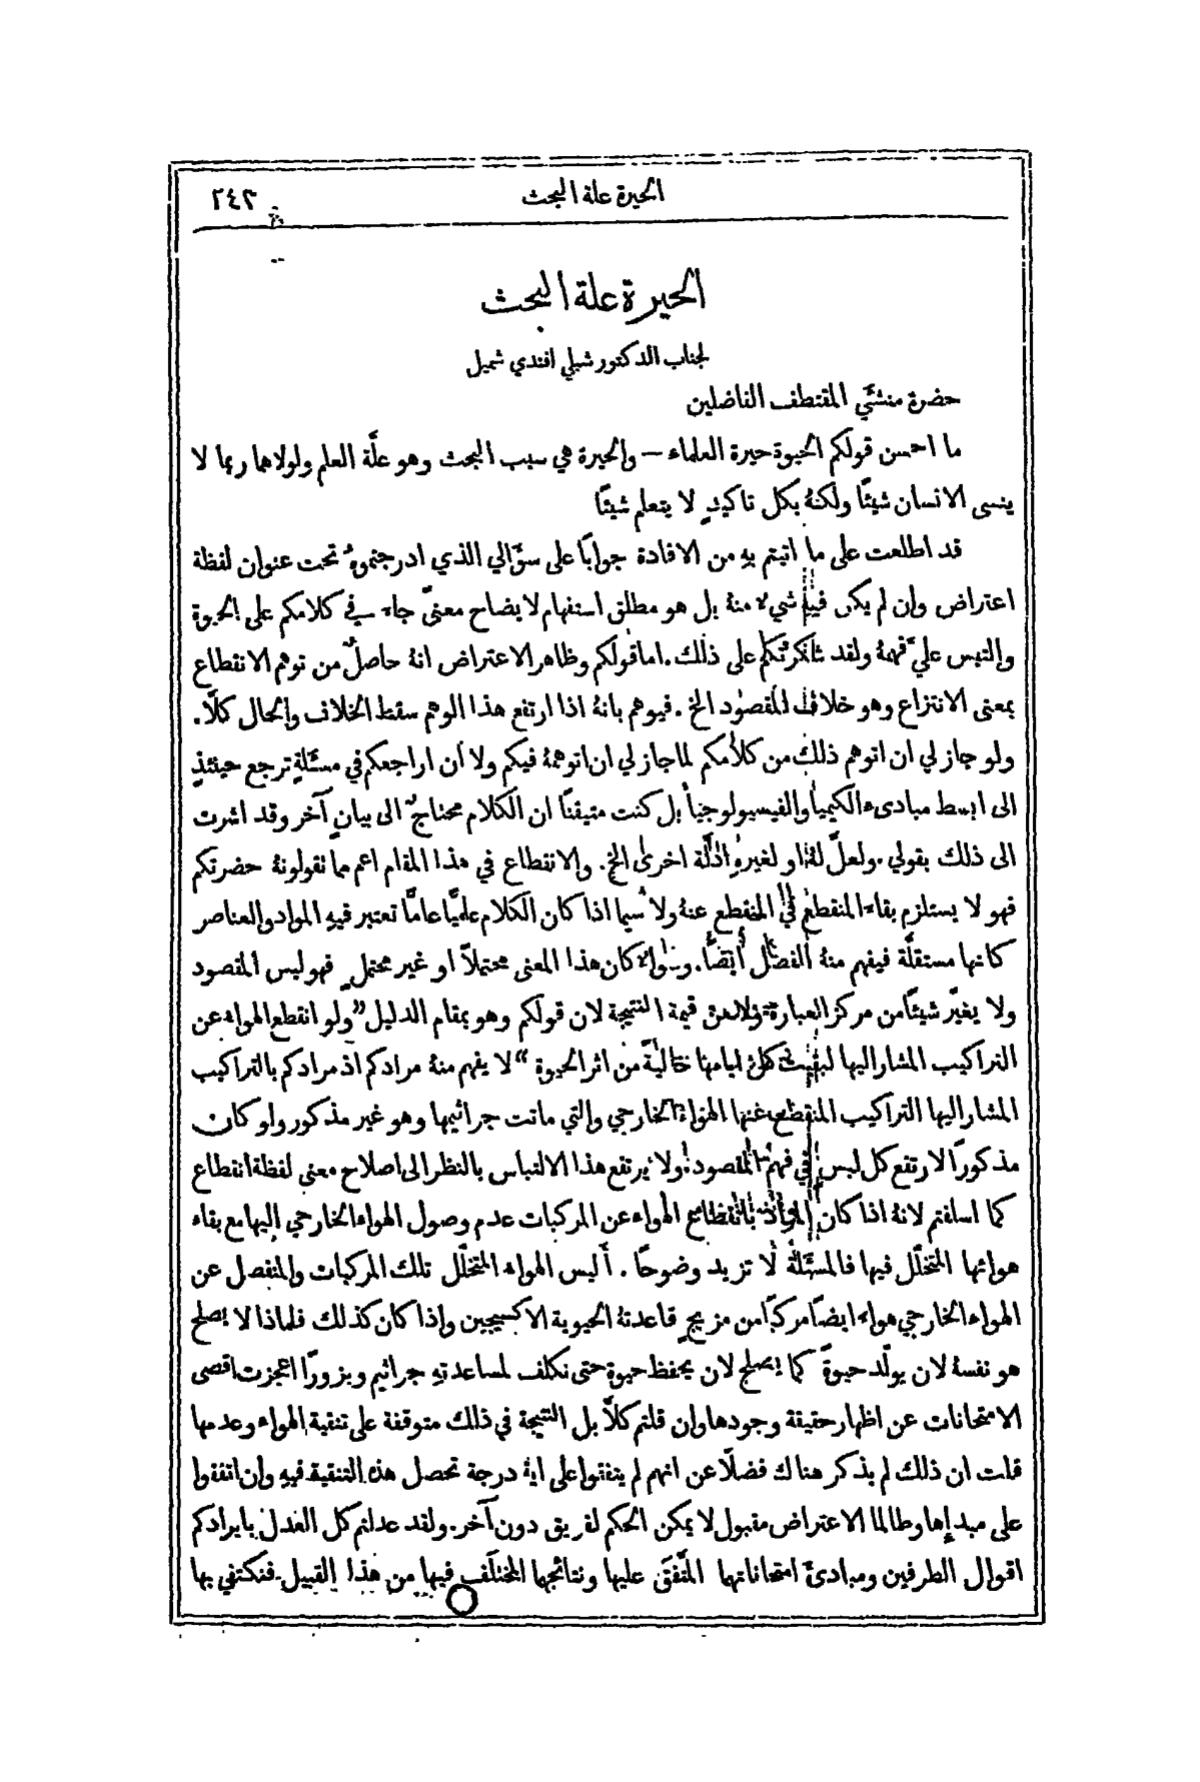 الحيرة علة البحث ٢٤٣
الحيرة علة البحث
لجناب الدكتور شبلي افندي شميل
حضرة منشئَي المقتطف الفاضلين
ما احسن قولكم الحيوة حيرة العلماء – والحيرة هي سبب البحث وهو علَّة العلم ولولاها ربما لا
ينسى الانسان شيئًا ولكنهُ بكل تاكيدٍ لا يتعلم شيئًا
قد اطلعت على ما اتيتم بهِ من الافادة جوابًا على سؤَالي الذي ادرجتموهُ تحت عنوان لفظة
اعتراض وإن لم يكن فيهِ شيءٌ منهُ بل هو مطلق استفهام لايضاح معنىً جاء في كلامكم على الحيوة
والتبس عليَّ فهمهُ ولقد شكرتكم على ذلك. اما قولكم وظاهر الاعتراض انهُ حاصلٌ من توهم الانقطاع
بمعنى الانتزاع وهو خلاف المقصود الخ. فيوهم بانهُ اذا ارتفع هذا الوهم سقط الخلاف والحال كلَّا.
ولو جاز لي ان اتوهم ذلك من كلامكم لما جاز لي ان اتوهمهُ فيكم ولا أن اراجعكم في مسئَلةٍ ترجع حينئذٍ
الى ابسط مبادىء الكيميا والفيسيولوجيا بل كنت متيقنًا ان الكلام محتاجٌ الى بيانٍ آخر وقد اشرت
الى ذلك بقولي. ولعلَّ لهُ او لغيرهِ ادلَّة اخرى الخ. والانقطاع في هذا المقام اعم مما تقولونهُ حضرتكم
فهو لا يستلزم بقاء المنقطع في المنقطع عنهُ ولا سيما اذا كان الكلام علميًّا عامًّا تعتبر فيهِ المواد والعناصر
كانها مستقلَّة فيفهم منهُ الفصل أيضًا. وسواء كان هذا المعنى محتملًا او غير محتملٍ فهو ليس المقصود
ولا يغيّر شيئًا من مركز العبارة ولا من قيمة النتيجة لان قولكم وهو بمقام الدليل "ولو انقطع الهواء عن
التراكيب المشار اليها لبقيت كل ايامها خاليةً من اثر الحيوة" لا يفهم منهُ مرادكم اذ مرادكم بالتراكيب
المشار اليها التراكيب المنقطع عنها الهواء الخارجي والتي ماتت جراثيمها وهو غير مذكور ولو كان
مذكورًا لارتفع كل لبس في فهم المقصود. ولا يرتفع هذا الالتباس بالنظر الى اصلاح معنى لفظة انقطاع
كما اسلفتم لانهُ اذا كان المراد بانقطاع الهواء عن المركبات عدم وصول الهواء الخارجي اليها مع بقاء
هوائها المتخلّل فيها فالمسئَلة لا تزيد وضوحًا. أليس الهواء المتخلّل تلك المركبات والمنفصل عن
الهواء الخارجي هواء ايضًا مركبًا من مزيجٍ قاعدتهُ الحيوية الاكسيجين وإذا كان كذلك فلماذا لا يصلح
هو نفسهُ لان يولّد حيوةً كما يصلح لان يحفظ حيوة حتى نكلف لمساعدتهِ جراثيم وبزورًا اعجزت اقصى
الامتحانات عن اظهار حقيقة وجودها وإن قلتم كلَّا بل النتيجة في ذلك متوقفة على تنقية الهواء وعدمها
قلت ان ذلك لم يذكر هناك فضلًا عن انهم لم يتفقوا على ايهِ درجة تحصل هذه التنقية فيهِ وإن اتفقوا
على مبداِها وطالما الاعتراض مقبول لا يمكن الحكم لفريق دون آخر. ولقد عدلتم كل العدل بايرادكم
اقوال الطرفين ومبادئ امتحاناتها المتَّفق عليها ونتائجها المختلَف فيها من هذا القبيل. فنكتفي بها